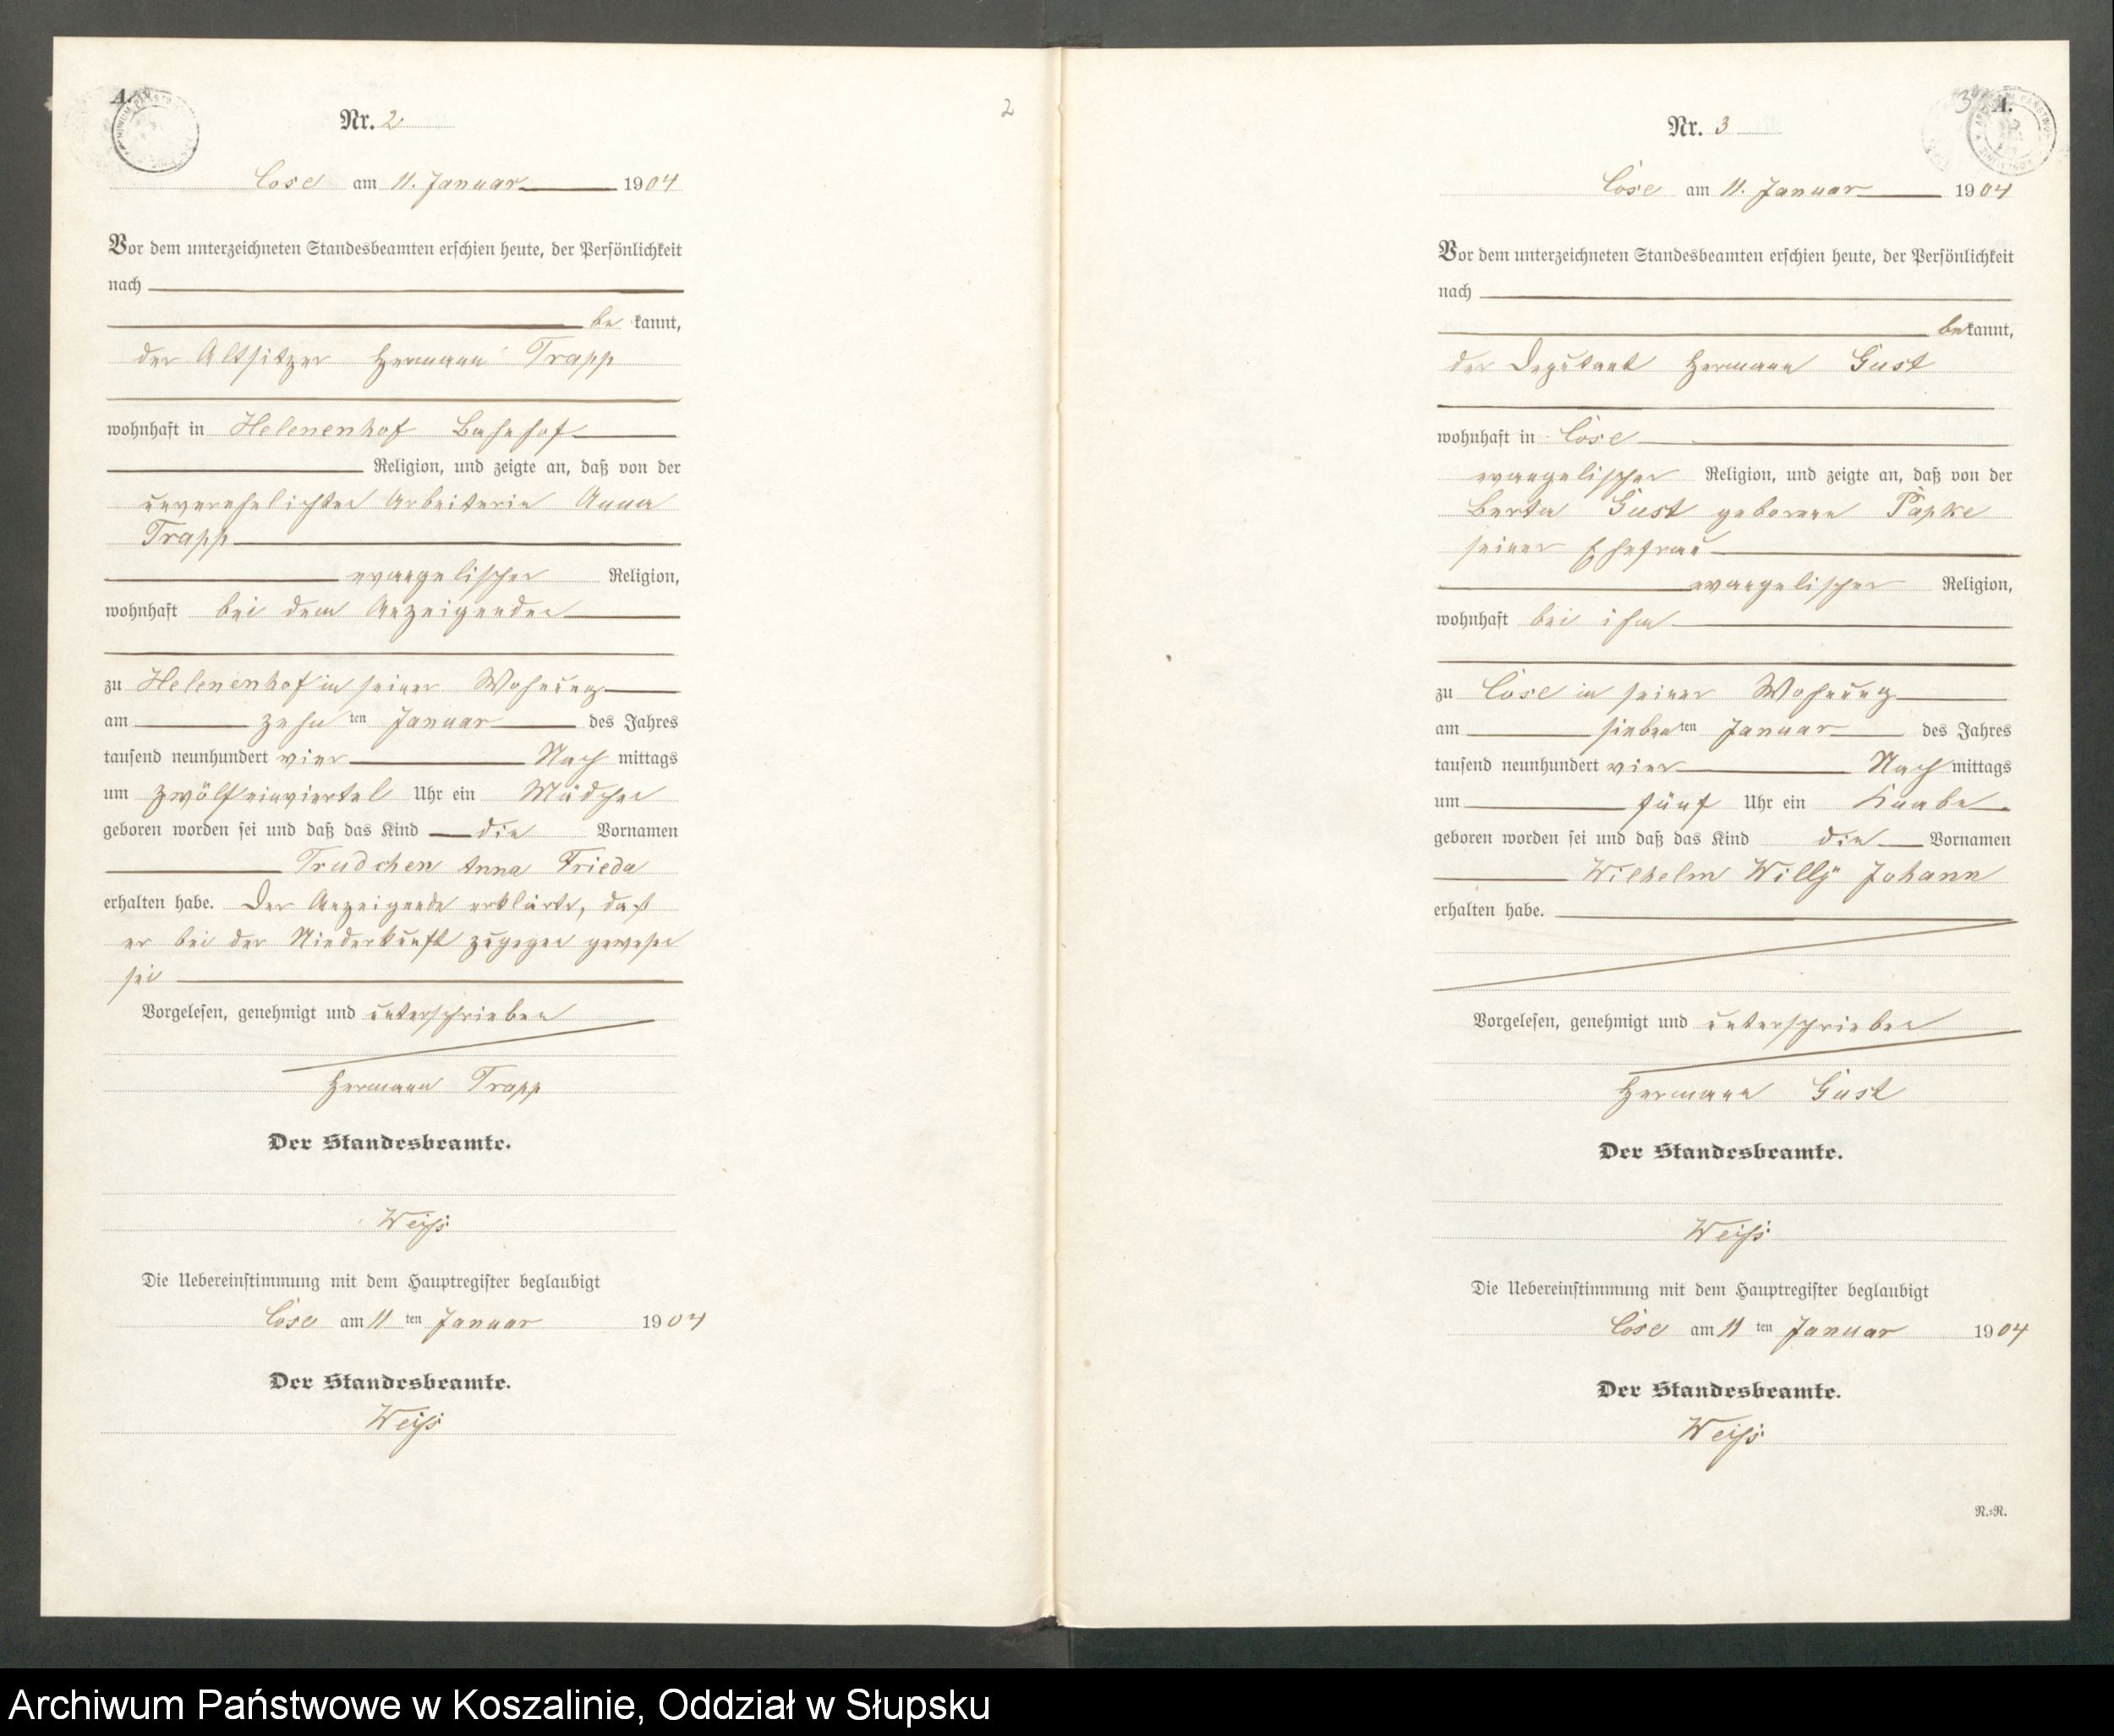 A.
Nr. 2
Cose am 11. Januar 1904
Vor dem unterzeichneten Standesbeamten erschien heute, der Persönlichkeit
nach
be kannt,
der Altsitzer Hermann Trapp
wohnhaft in Helenenhof Bahnhof
Religion, und zeigte an, daß von der
unverehelichten Arbeiterin Anna
Trapp
evangelischer Religion,
wohnhaft bei dem Anzeigenden
zu Helenenhof in seiner Wohnung
am zehn ten Januar des Jahres
tausend neunhundert vier Nach mittags
um zwölfeinviertel Uhr ein Mädchen
geboren worden sei und daß das Kind die Vornamen
Trudchen Anna Frieda
erhalten habe. Der Anzeigende erklärte, daß
er bei der Niederkunft zugegen gewesen
sei
Vorgelesen, genehmigt und unterschrieben
Hermann Trapp
Der Standesbeamte.
Weiß
Die Uebereinstimmung mit dem Hauptregister beglaubigt
Cose am 11 ten Januar 1904
Der Standesbeamte.
Weiß
2
3
A.
Nr. 3
Cose am 11. Januar 1904
Vor dem unterzeichneten Standesbeamten erschien heute, der Persönlichkeit
nach
bekannt,
der Deputant Hermann Gust
wohnhaft in Cose
evangelischer Religion, und zeigte an, daß von der
Berta Gust geborene Papke
seiner Ehefrau
evangelischer Religion,
wohnhaft bei ihm
zu Cose in seiner Wohnung
am sieben ten Januar des Jahres
tausend neunhundert vier Nach mittags
um fünf Uhr ein Knabe
geboren worden sei und daß das Kind die Vornamen
Wilhelm Willÿ Johann
erhalten habe.
Vorgelesen, genehmigt und unterschrieben
Hermann Gust
Der Standesbeamte.
Weiß
Die Uebereinstimmung mit dem Hauptregister beglaubigt
Cose am 11 ten Januar 1904
Der Standesbeamte.
Weiß
N.=R.
Archiwum Państwowe w Koszalinie, Oddział w Słupsku